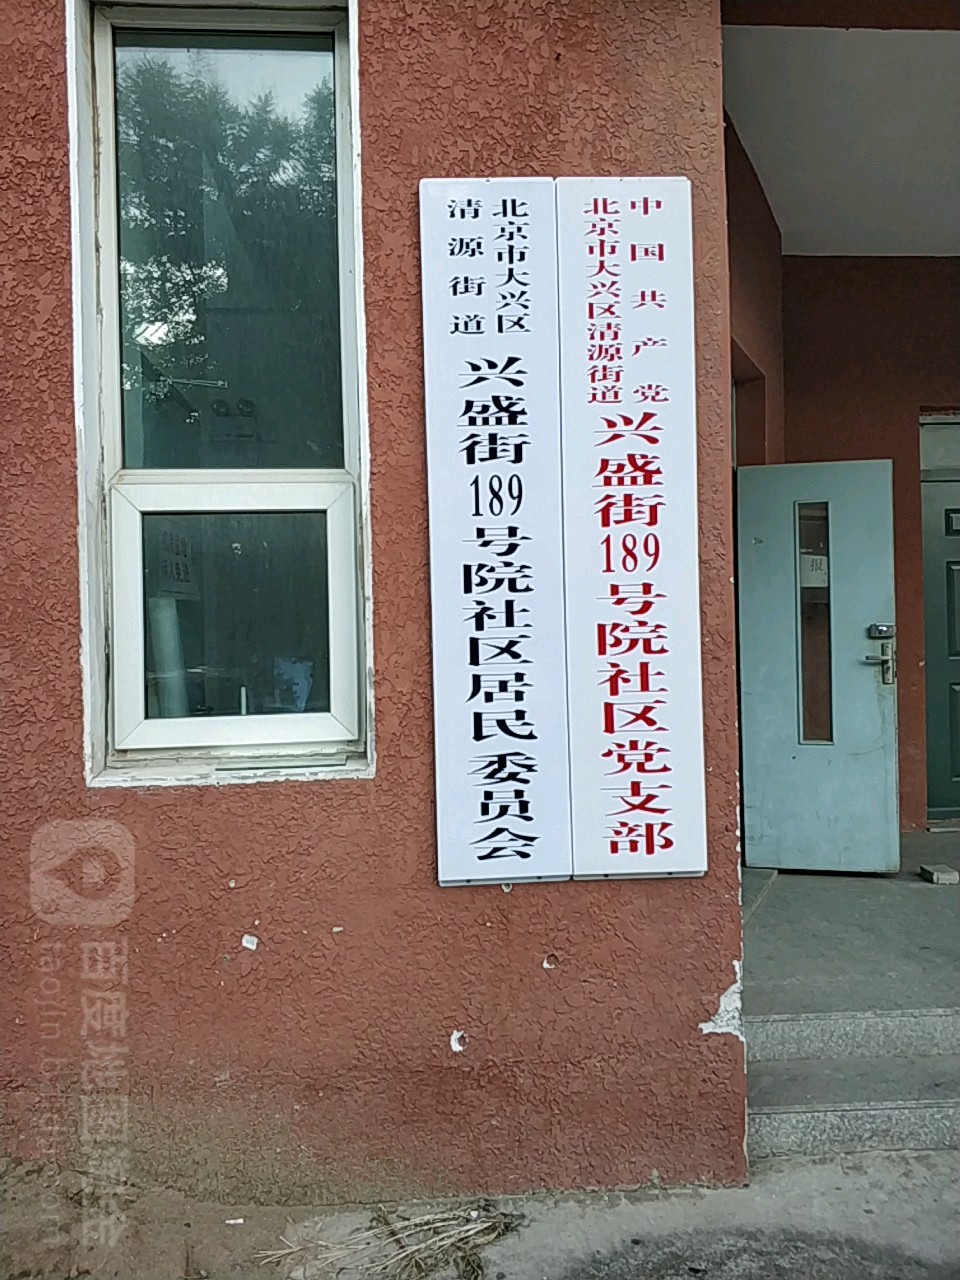 中国共产党
北京市大兴区清源街道
兴盛街189号院社区党支部
北京市大兴区
清源街道
兴盛街189号院社区居民委员会
报
百度地图淘金
taojin.baidu.com